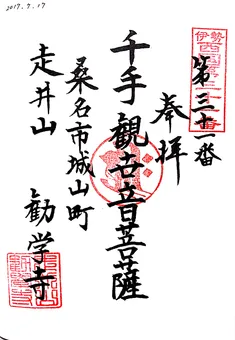 2017.7.17
伊勢
第三十一番
奉拝
千手観世音菩薩
桑名市城山町
走井山
勧学寺